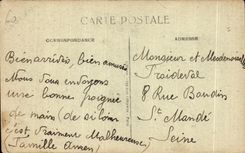 CARTE POSTALE
CORRESPONDANCE
Bien arrivés, bien amusés
Nous vous envoyons
une bonne poignée
de main (de si loin
c'est vraiment Malheureux)
Famille
ADRESSE
Monsieur et Mesdemoiselles
8 Rue Baudin
St Mandé
Seine